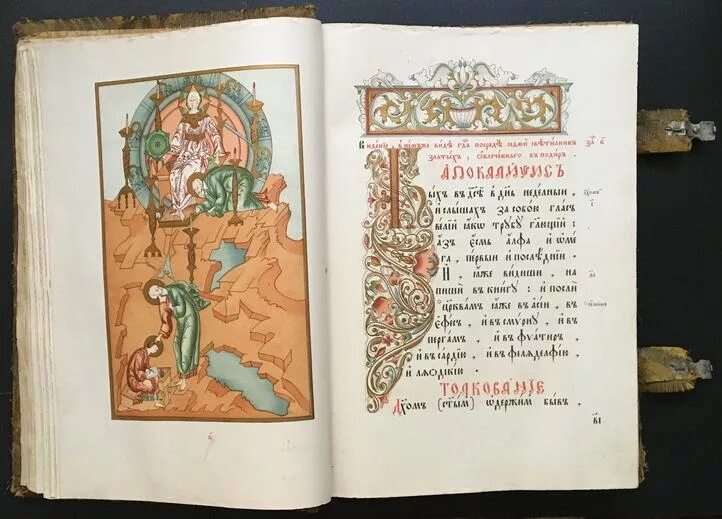 Видѣнїе , в немже видѣ гд҇а посредѣ седми свѣтилникъ
златыхъ , облеченнаго въ подиръ .
АПОКАЛИѰИСЪ
Быхъ въ дс҃ѣ в днь недѣлныи ,
и слышахъ за собою гласъ
велїи ꙗко трубу глющїи :
азъ есмь алфа и ѡме
га , первыи и послѣднїи .
И , ꙗже видиши , на
пиши въ книгу : и посли
црквамъ ꙗже въ асїи , въ
ефесъ , и въ смѵрну , и въ
пергамъ , и въ фꙋатиръ ,
и въ сардїю , и въ фїладелфїю ,
и лаѡдїкїю .
ТОЛКОВАНЇЕ
Дх҃омъ (ст҃ымъ) ѡдержимъ бывъ .
в҃і